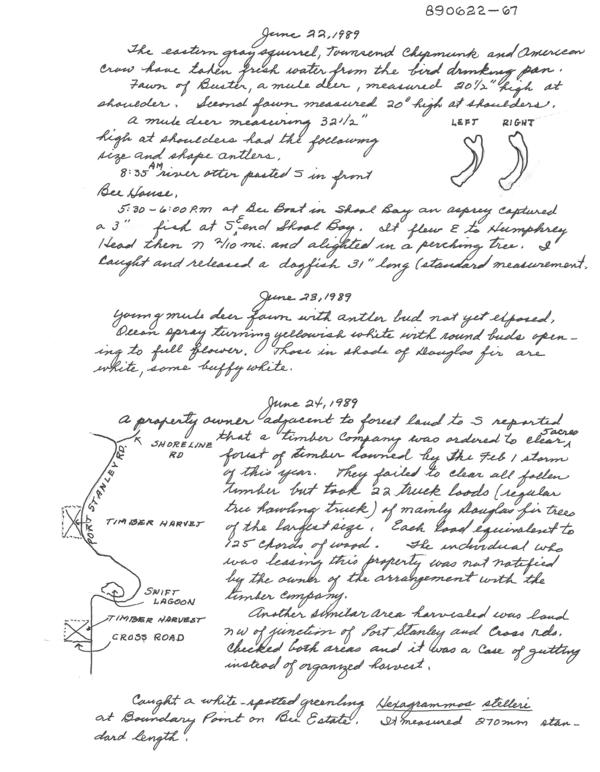 890622-67
June 22, 1989
The eastern gray squirrel, Townsend Chipmunk and American
Crow have taken fresh water from the bird drinking pan.
Fawn of Buster, a mule deer, measured 20½" high at
shoulder. Second fawn measured 20" high at shoulders.
A mule deer measuring 32½"
LEFT RIGHT
high at shoulders had the following
size and shape antlers.
8:35 AM river otter passed S in front
Bee House.
5:30-6:00 P.M. at Bee Boat in Shoal Bay an osprey captured
a 3" fish at SE end Shoal Bay. It flew E to Humphrey
Head then N 2/10 mi. and alighted in a perching tree. I
Caught and released a dogfish 31" long (standard measurement.
June 23, 1989
Young mule deer fawn with antler bud not yet exposed.
Ocean spray turning yellowish white with round buds open-
ing to full flower. Those in shade of Douglas fir are
white, some buffy white.
June 24, 1989
A property owner adjacent to forest land to S reported
that a timber company was ordered to clear 5 acres
forest of timber downed by the Feb 1 storm
of this year. They failed to clear all fallen
timber but took 22 truck loads (regular
tree hawling truck) of mainly Douglas fir trees
of the largest size. Each load equivalent to
125 chords of wood. The individual who
was leasing this property was not notified
by the owner of the arrangement with the
timber company.
Another similar area harvested was land
NW of junction of Port Stanley and Cross rds.
Checked both areas and it was a case of gutting
instead of organized harvest.
SHORELINE
RD
PORT STANLEY RD.
TIMBER HARVEST
SWIFT
LAGOON
TIMBER HARVEST
CROSS ROAD
Caught a white-spotted greenling Hexagrammos stelleri
at Boundary Point on Bee Estate. It measured 270mm stan-
dard length.